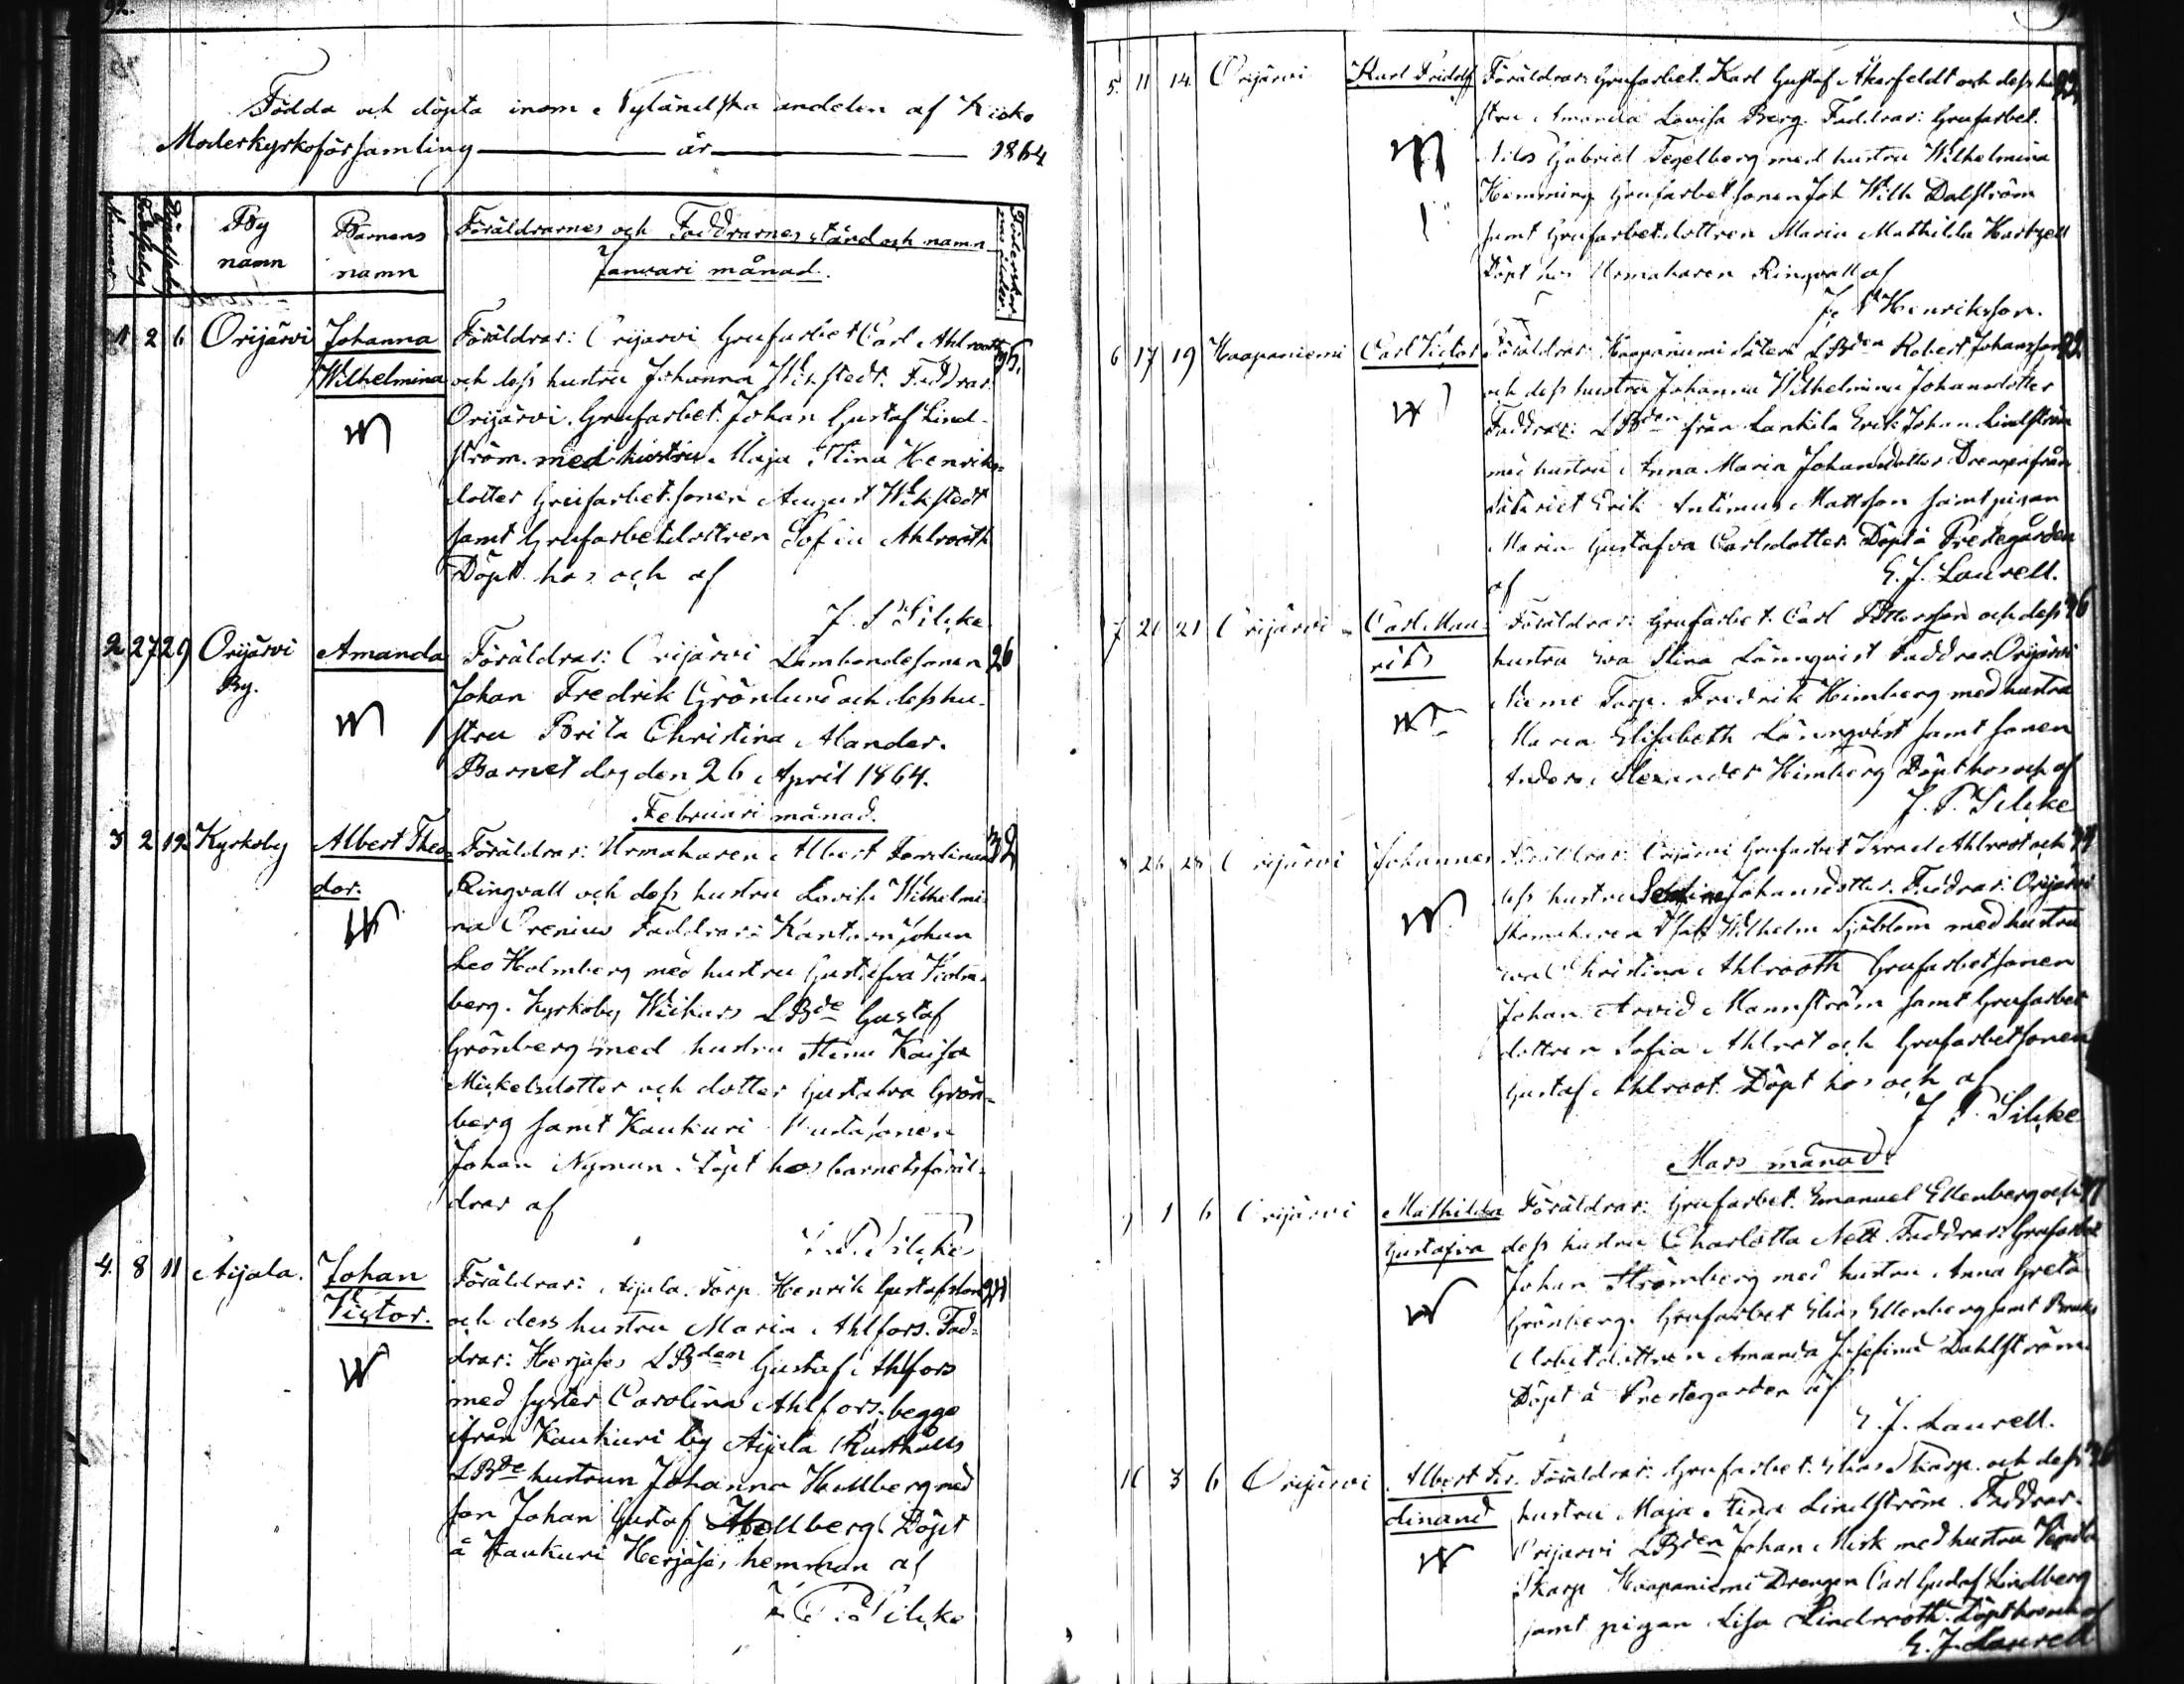 92.
Födda och döpta inom Nyländska andelen af Kisko
Moderkyrkoförsamling år 1864
By namn
Barnens namn
Föräldrarnes och Faddrarnes stånd och namn
Januari månad.
1 2 6 Orijärvi Johanna Wilhelmina
Föräldrar: Orijärvi Grufarbet Carl Ahlrooth
och dess hustru Johanna Wikstedt. Faddrar:
Orijärvi Grufarbet. Johan Gustaf Lind-
ström med hustru Maja Stina Henriks-
dotter Grufarbet.sonen August Wikstedt
samt Grufarbetdottren Sofia Ahlrooth
Döpt hos och af
J. P. Silcke
2 27 29 Orijärvi By. Amanda
Föräldrar: Orijärvi Landbondesonen 26
Johan Fredrik Grönlund och dess hu-
stru Brita Christina Alander.
Barnet dog den 26 April 1864.
Februari månad.
3 2 12 Kyrkoby Albert Theo-
dor.
Föräldrar: Urmakaren Albert Ferdinand
Ringvall och dess hustru Lovisa Wilhelmi-
na Orenius Faddrar: Kantorn Johan
Leo Holmberg med hustru Gustafva Holm-
berg. Kyrkoby Wickars LBde Gustaf
Grönberg med hustru Stina Kaisa
Mickelsdotter och dotter Gustafva Grön-
berg samt Kaukuri Rustsonen
Johan Nyman. Döpt hos barnets föräl-
drar af
J. P. Silcke
4. 8 11 Aijala. Johan Victor.
Föräldrar: Aijala Torp. Henrik Gustafsson
och dess hustru Maria Ahlfors. Fad-
drar: Herjäses LBden Gustaf Ahlfors
med syster Carolina Ahlfors, begge
ifrån Kaukuri by Aijala Rusthålls
LBde hustrun Johanna Hollberg med
son Johan Gustaf Hollberg Döpt
å Kaukuri Herjäses hemman af
J. P. Silcke
5. 11 14 Orijärvi Karl Fridolf
Föräldrar: Grufarbet. Karl Gustaf Åkerfeldt och dess hu-
stru Amanda Lovisa Berg. Faddrar: Grufarbet.
Nils Gabriel Tegelberg med hustru Wilhelmina
Hemming Grufarbetsonen Joh Wilh Dalström
samt Grufarbetdottren Maria Mathilda Hartzell
Döpt hos Urmakaren Ringvall af
J. Henriksson.
6 17 19 Haapaniemi Carl Victor
Föräldrar: Haapaniemi säteri LBden Robert Johansson 22.
och dess hustru Johanna Wilhelmina Johansdotter
Faddrar: LBden från Lankila Erik Johan Lindström
med hustru Anna Maria Johansdotter Drengen från
säteriet Erik Antinus Mattsson samt pigan
Maria Gustafva Carlsdotter Döpt å Prestegården
af E. J. Laurell.
7 20 21 Orijärvi Carl Mau-
rits
Föräldrar: Grufarbet. Carl Pettersson och dess 36
hustru Eva Stina Lönnqvist Faddrar: Orijärvi
Nieme Torp. Fredrik Himberg med hustru
Maria Elisabeth Lönnqvist samt sonen
Anders Alexander Himberg Döpt hos och af
J. P. Silcke
8 26 28 Orijärvi Johannes
Föräldrar: Orijärvi Grufarbet Israel Ahlroot och
dess hustru Johansdotter. Faddrar: Orijärvi
Skomakaren Wilhelm Sjöblom med hustru
Eva Christina Ahlrooth Grufarbetsonen
Johan Arvid Mannström samt Grufarbet
dottren Sofia Ahlrot och Grufarbetsonen
Gustaf Ahlroot. Döpt hos och af
J P. Silcke
Mars månad.
9 1 6 Orijärvi Mathilda Gustafva
Föräldrar: Grufarbet. Emanuel Ellenberg och
dess hustru Charlotta Nett. Faddrar: Grufarbet
Johan Strömberg med hustru Anna Greta
Grönberg. Grufarbet Elias Ellenberg samt Bruks
Arbetdottren Amanda Josefina Dahlström
Döpt å Prestegården af
E. J. Laurell.
10 3 6 Orijärvi Albert Fer-
dinand
Föräldrar: Grufarbet. Elias Skarp och dess 36
hustru Maja Stina Lindström. Faddrar:
Orijärvi LBden Johan Misk med hustru
Skarp Haapaniemi Drengen Carl Gustaf Lindberg
samt pigan Lisa Lindrooth. Döpt hos och af
E. J. Laurell